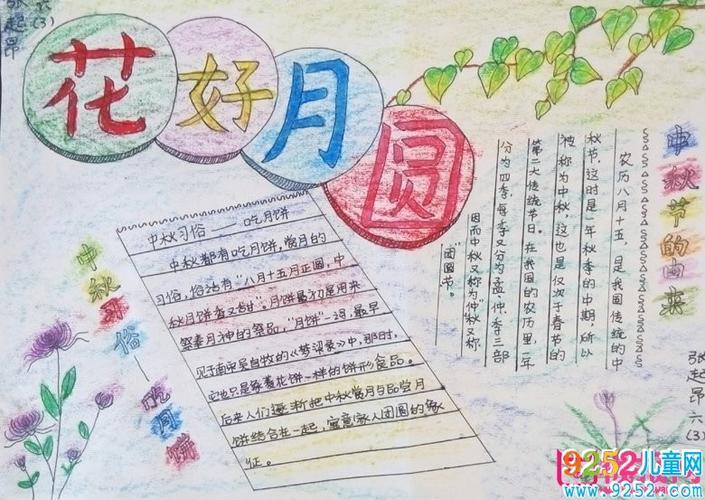 张起昂
六(3)
花好月圆
中秋节的由来
农历八月十五，是我国传统的中
秋节这时是一年秋季的中期，所以
被称为中秋，这也是仅次于春节的
第二大传统节日。在我国的农历里，一年
分为四季，每季又分为孟、仲、季三部
因而中秋又称为“仲”秋又称
“团圆节。
中秋习俗—吃月饼
中秋习俗——吃月饼
中秋都有吃月饼，赏月的
习俗，俗话有“八月十五月正圆，中
秋月饼香又甜”。月饼最初是用来
祭奉月神的祭品，“月饼”一词，最早
见于南宋吴自牧的《梦梁录》中，那时，
它也只是象菱花饼一样的饼形食品。
后来人们逐渐把中秋赏月与品尝月
饼结合在一起，寓意家人团圆的象
征。
张起昂
六(3)
9252儿童网
www.9252.com